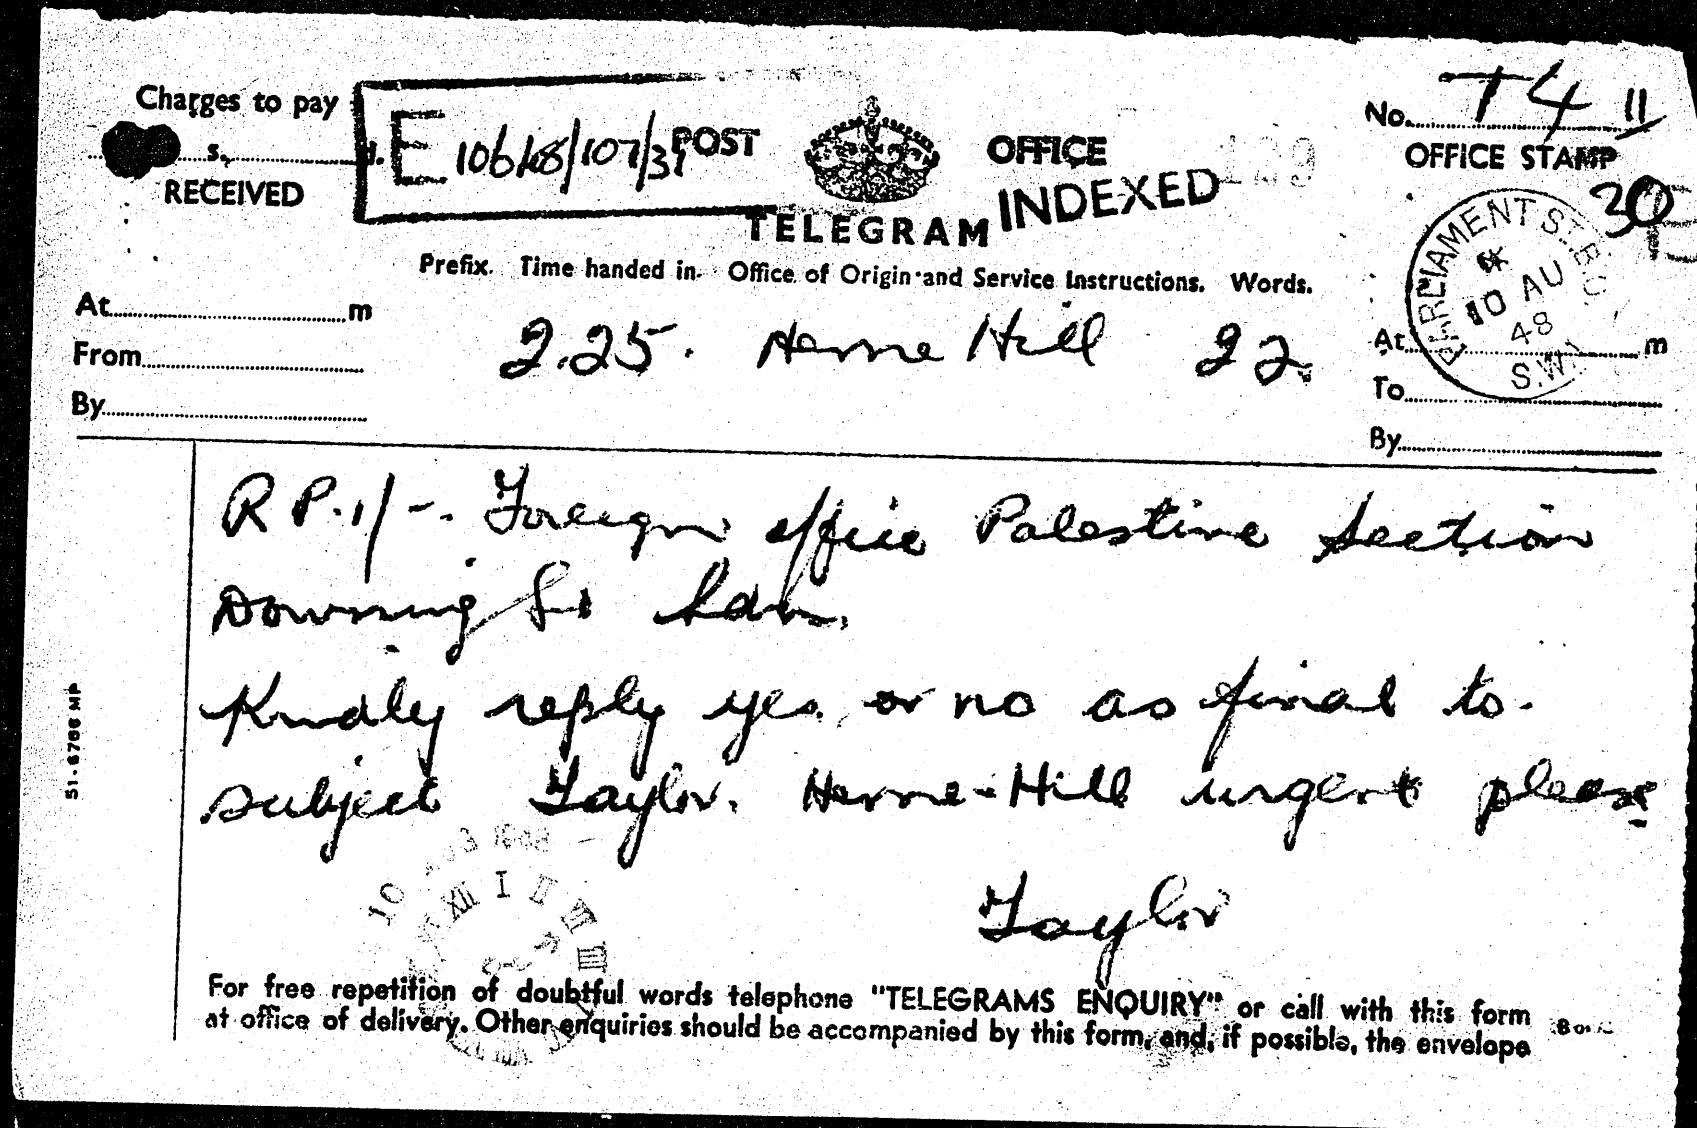 Charges to pay
s. d.
RECEIVED
E 10648/107/31
POST OFFICE
TELEGRAM
INDEXED
No. T4 11
OFFICE STAMP
30
PARLIAMENT ST. B.O.
10 AU
48
S.W.1
Prefix. Time handed in. Office of Origin and Service Instructions. Words.
2.25. Herne Hill 22.
At m
From
By
At m
To
By
R P. 1/-. Foreign office Palestine Section
Downing St Ldn.
Kindly reply yes or no as final to.
subject Taylor. Herne-Hill urgent please
Taylor
10
XII I II III IIII
For free repetition of doubtful words telephone "TELEGRAMS ENQUIRY" or call with this form
at office of delivery. Other enquiries should be accompanied by this form, and, if possible, the envelope
51-6786 MP